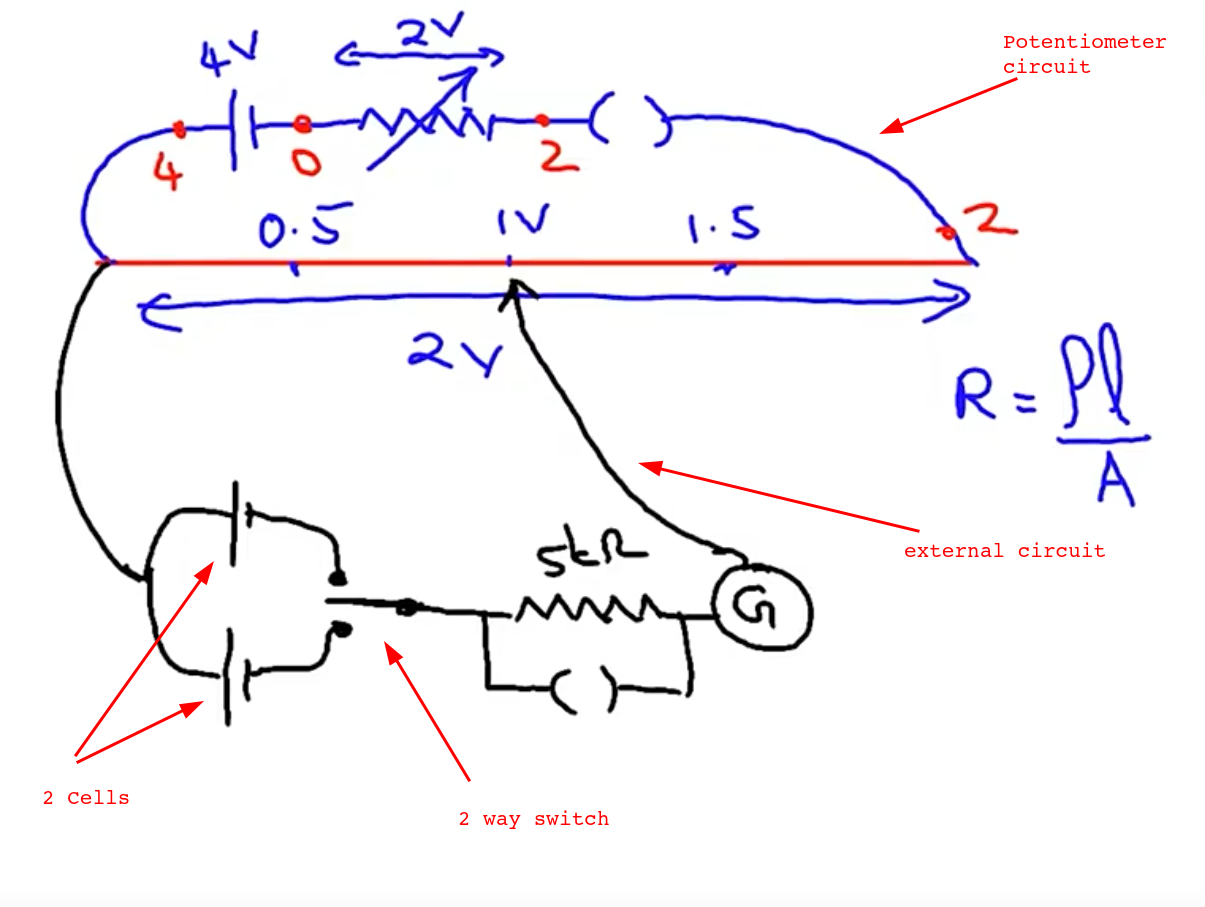 2V
4V
Potentiometer
circuit
4
0
2
0.5
1V
1.5
2
2V
R = ρl
A
5kΩ
external circuit
G
2 Cells
2 way switch